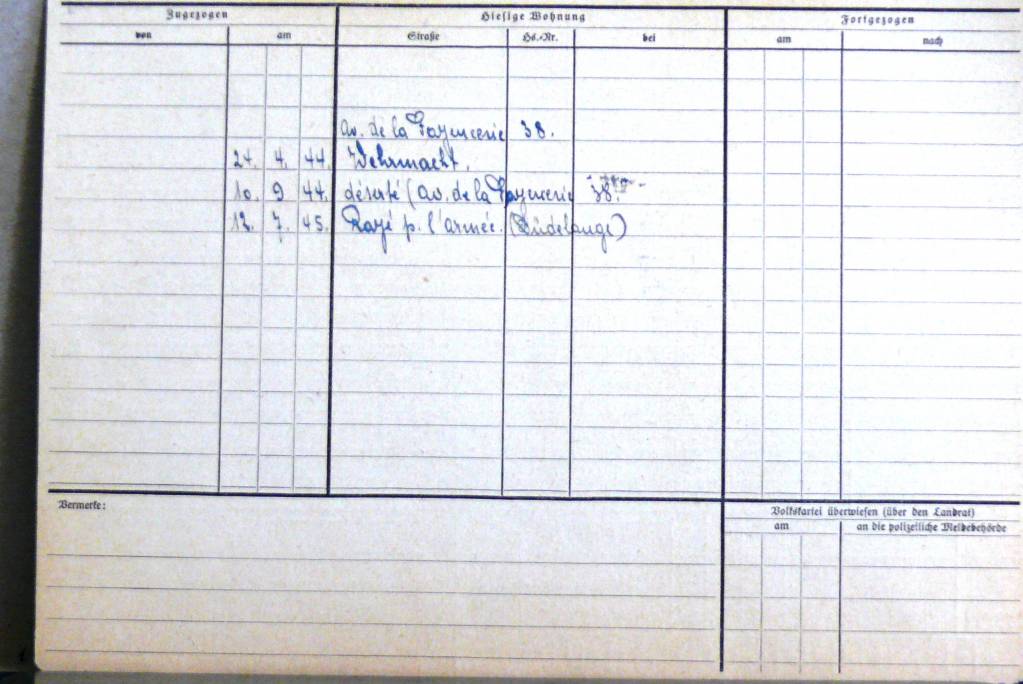 Zugezogen Hiesige Wohnung Fortgezogen
von am Straße Hs.-Nr. bei am nach
Av. de la Fayencerie 38.
24. 4. 44. Wehrmacht.
10. 9 44. déserté (Av. de la Fayencerie 38.
12. 7. 45. Rayé p. l'armée. (Dudelange)
Vermerke: Volkskartei überwiesen (über den Landrat)
am an die polizeiliche Meldebehörde